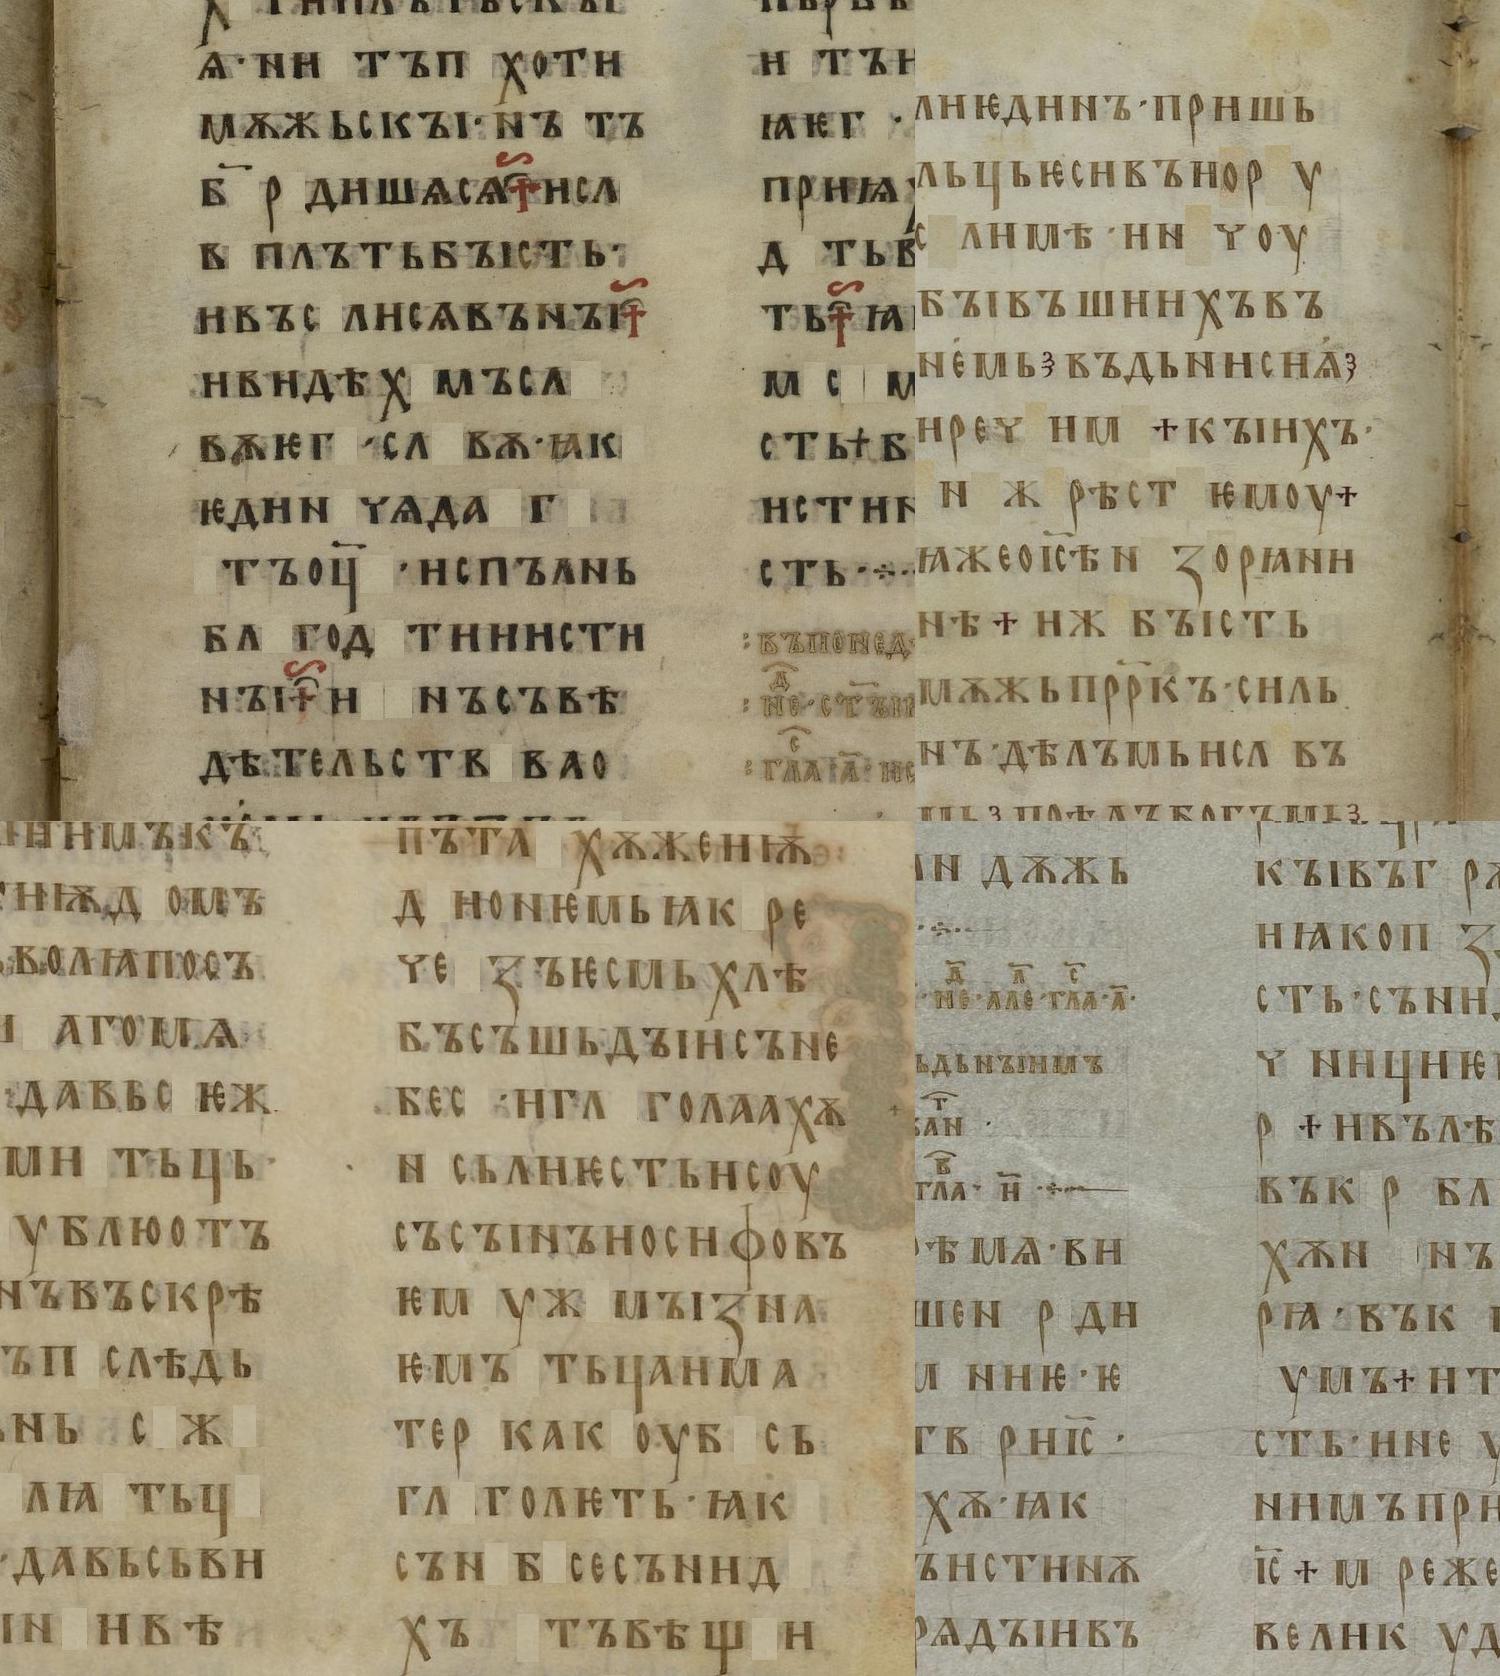 ѧ·ни тъп хоти
мѫжьскꙑ·нъ тъ
б҃ р дишѧсѧ исл
в плътьбꙑсть·
ивъс лисѧвънꙑ
ивидѣх мъсл
вѫѥг ·сл вѫ·ꙗк
ѥдин чѧда г
тъоц҃ ·испълнь
бл год тиинсти
нꙑ и нъсъвѣ
дѣтельств вао
и тън
ꙗѥг ·
приꙗ
д тьв
ть ꙗ
м с м
сть+б
исти
сть·
въпонед
не·ст꙯ꙑ
гла·а҃·
лиѥдинъ·пришь
льцьѥсивъиор у
с лимѣ·ни чоу
бꙑвъшиихъвъ
немь въдьнисиꙗ
иреч им +кꙑихъ·
н ж рѣст ѥмоу+
ꙗжеоі҃сѣн зорꙗни
нѣ+иж бꙑсть
мѫжьпррк҃ъ·силь
нъ·дѣлъмьисл въ
нимъкъ
тиѭд омъ
волꙗпосъ
агомѧ
·давьс ѥж
ми тьць·
ублюотъ
нъвъскрѣ
ъп слѣдь
нь с ж
лꙗ тьц
·давьсьви
ин ивѣ
пъта хѫжениѭ
д нонѥмьꙗк ре
че зъѥсмьхлѣ
бъсъшьдꙑисъне
бес ·игл голаахѫ
и сьлиѥстьисоу
съсꙑнъиосифовъ
ѥм уж мꙑзна
ѥмъ тьцаима
тер как оуб сь
гл голѥть·ꙗк
сън б сесъннд
хъ тъвѣщ и
ин дѫжь
·не·але·гла·а҃·
ьдьнꙑимъ
гла· и҃
ѣмѧ·ви
шен р ди
л ниѥ·ѥ
тв рниі҃с ·
хѫ·ꙗк
ъистинѫ
рѧдꙑивъ
кꙑвъг р
ниꙗкоп з
сть·съни
ч ницию
р +ивълѣ
вък р бл
хѫи нъ
рꙗ·вък
умъ+ит
сть·ине у
нимъпри
і҃с+м реже
велик уд